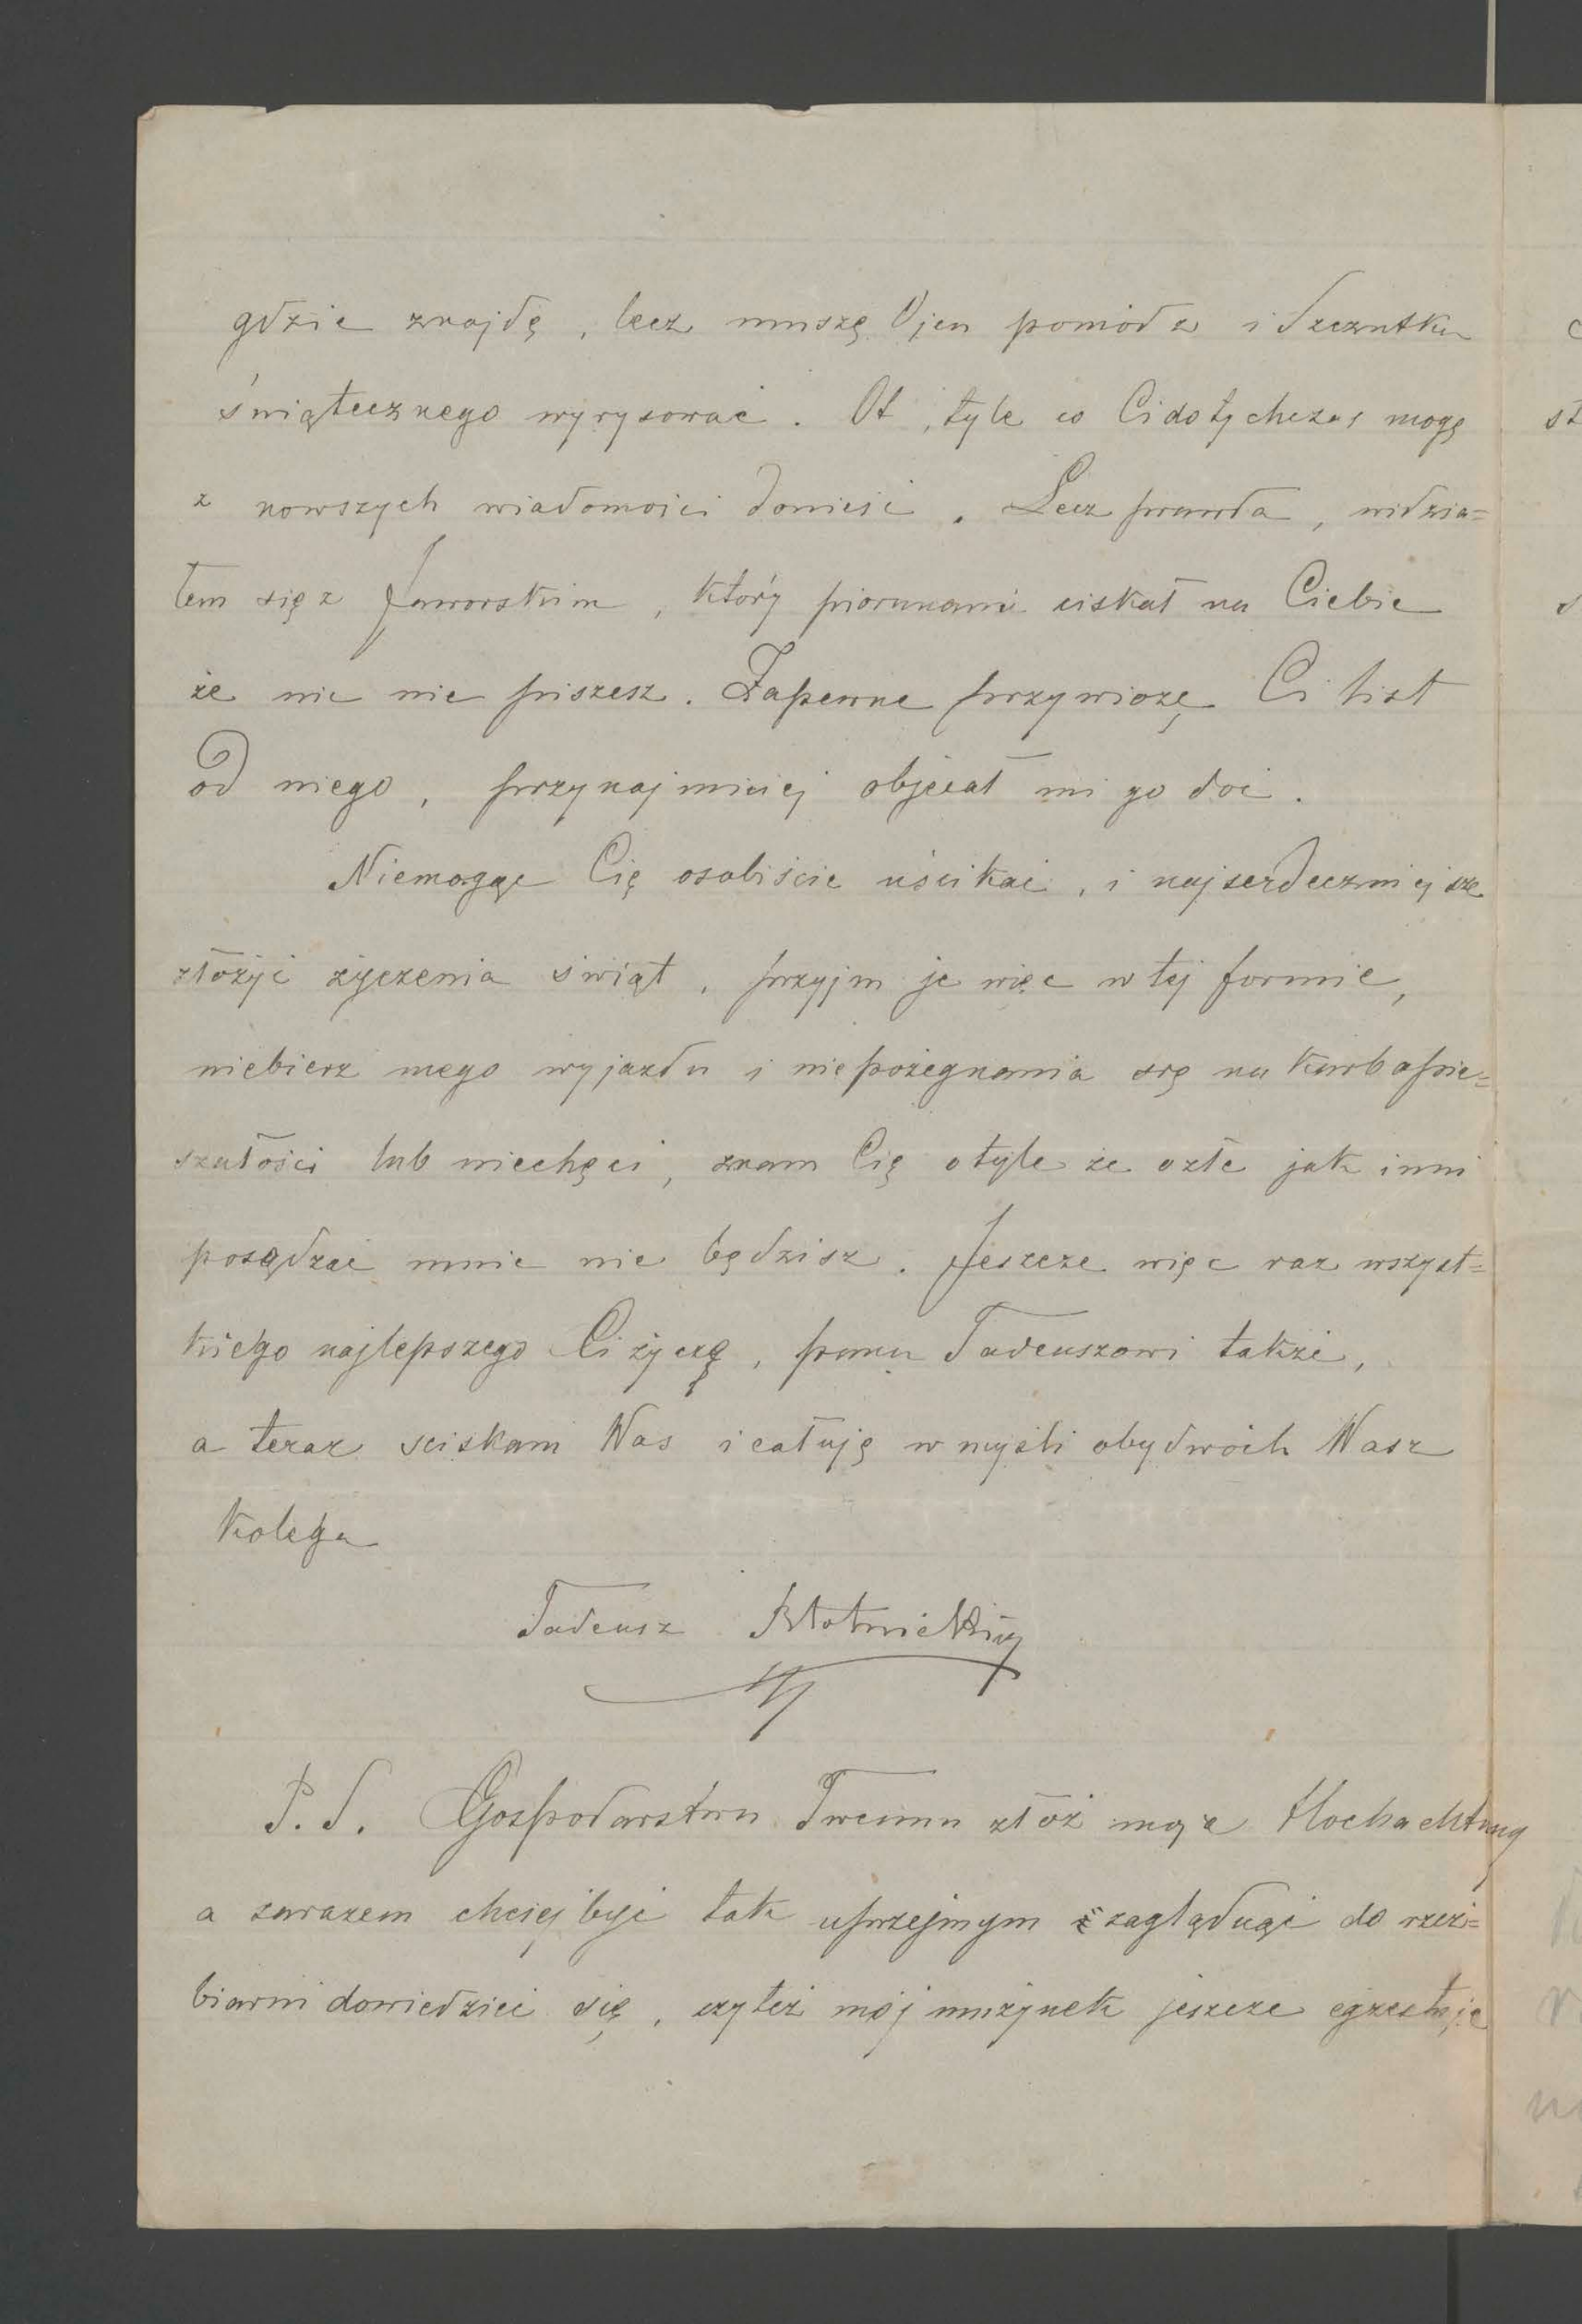 gdzie znajdę, lecz muszę Ojcu pomódz i Szczutka
świątecznego wyrysować. Ot, tyle co Ci dotychczas mogę
z nowszych wiadomości donieść. Lecz prawda, widzia=
łem się z Jaworskim, który piorunami ciskał na Ciebie
że nic nie piszesz. Zapewne przywiozę Ci list
od niego, przynajmniej objecał mi go dać.
Niemogąc Cię osobiście uścikać, i najserdeczniejsze
złożyć życzenia świąt, przyjm je więc w tej formie,
niebierz mego wyjazdu i niepożegnania się na karb opie=
szałości lub niechęci, znam Cię otyle że ozłe jak inni
posądzać mnie nie będzisz. Jeszcze więc raz wszyst=
kiego najlepszego Ci życzę, panu Tadeuszowi także,
a teraz sciskam Was i całuję w myśli obydwóch Wasz
kolega
Tadeusz Błotnicki
P.S. Gospodarstwu Twemu złóż moje Hochachtung
a zarazem chciej być tak uprzejmym zaglądnąć do rzeź=
biarni dowiedzieć się, czyteż mój murzynek jeszcze egzestuje